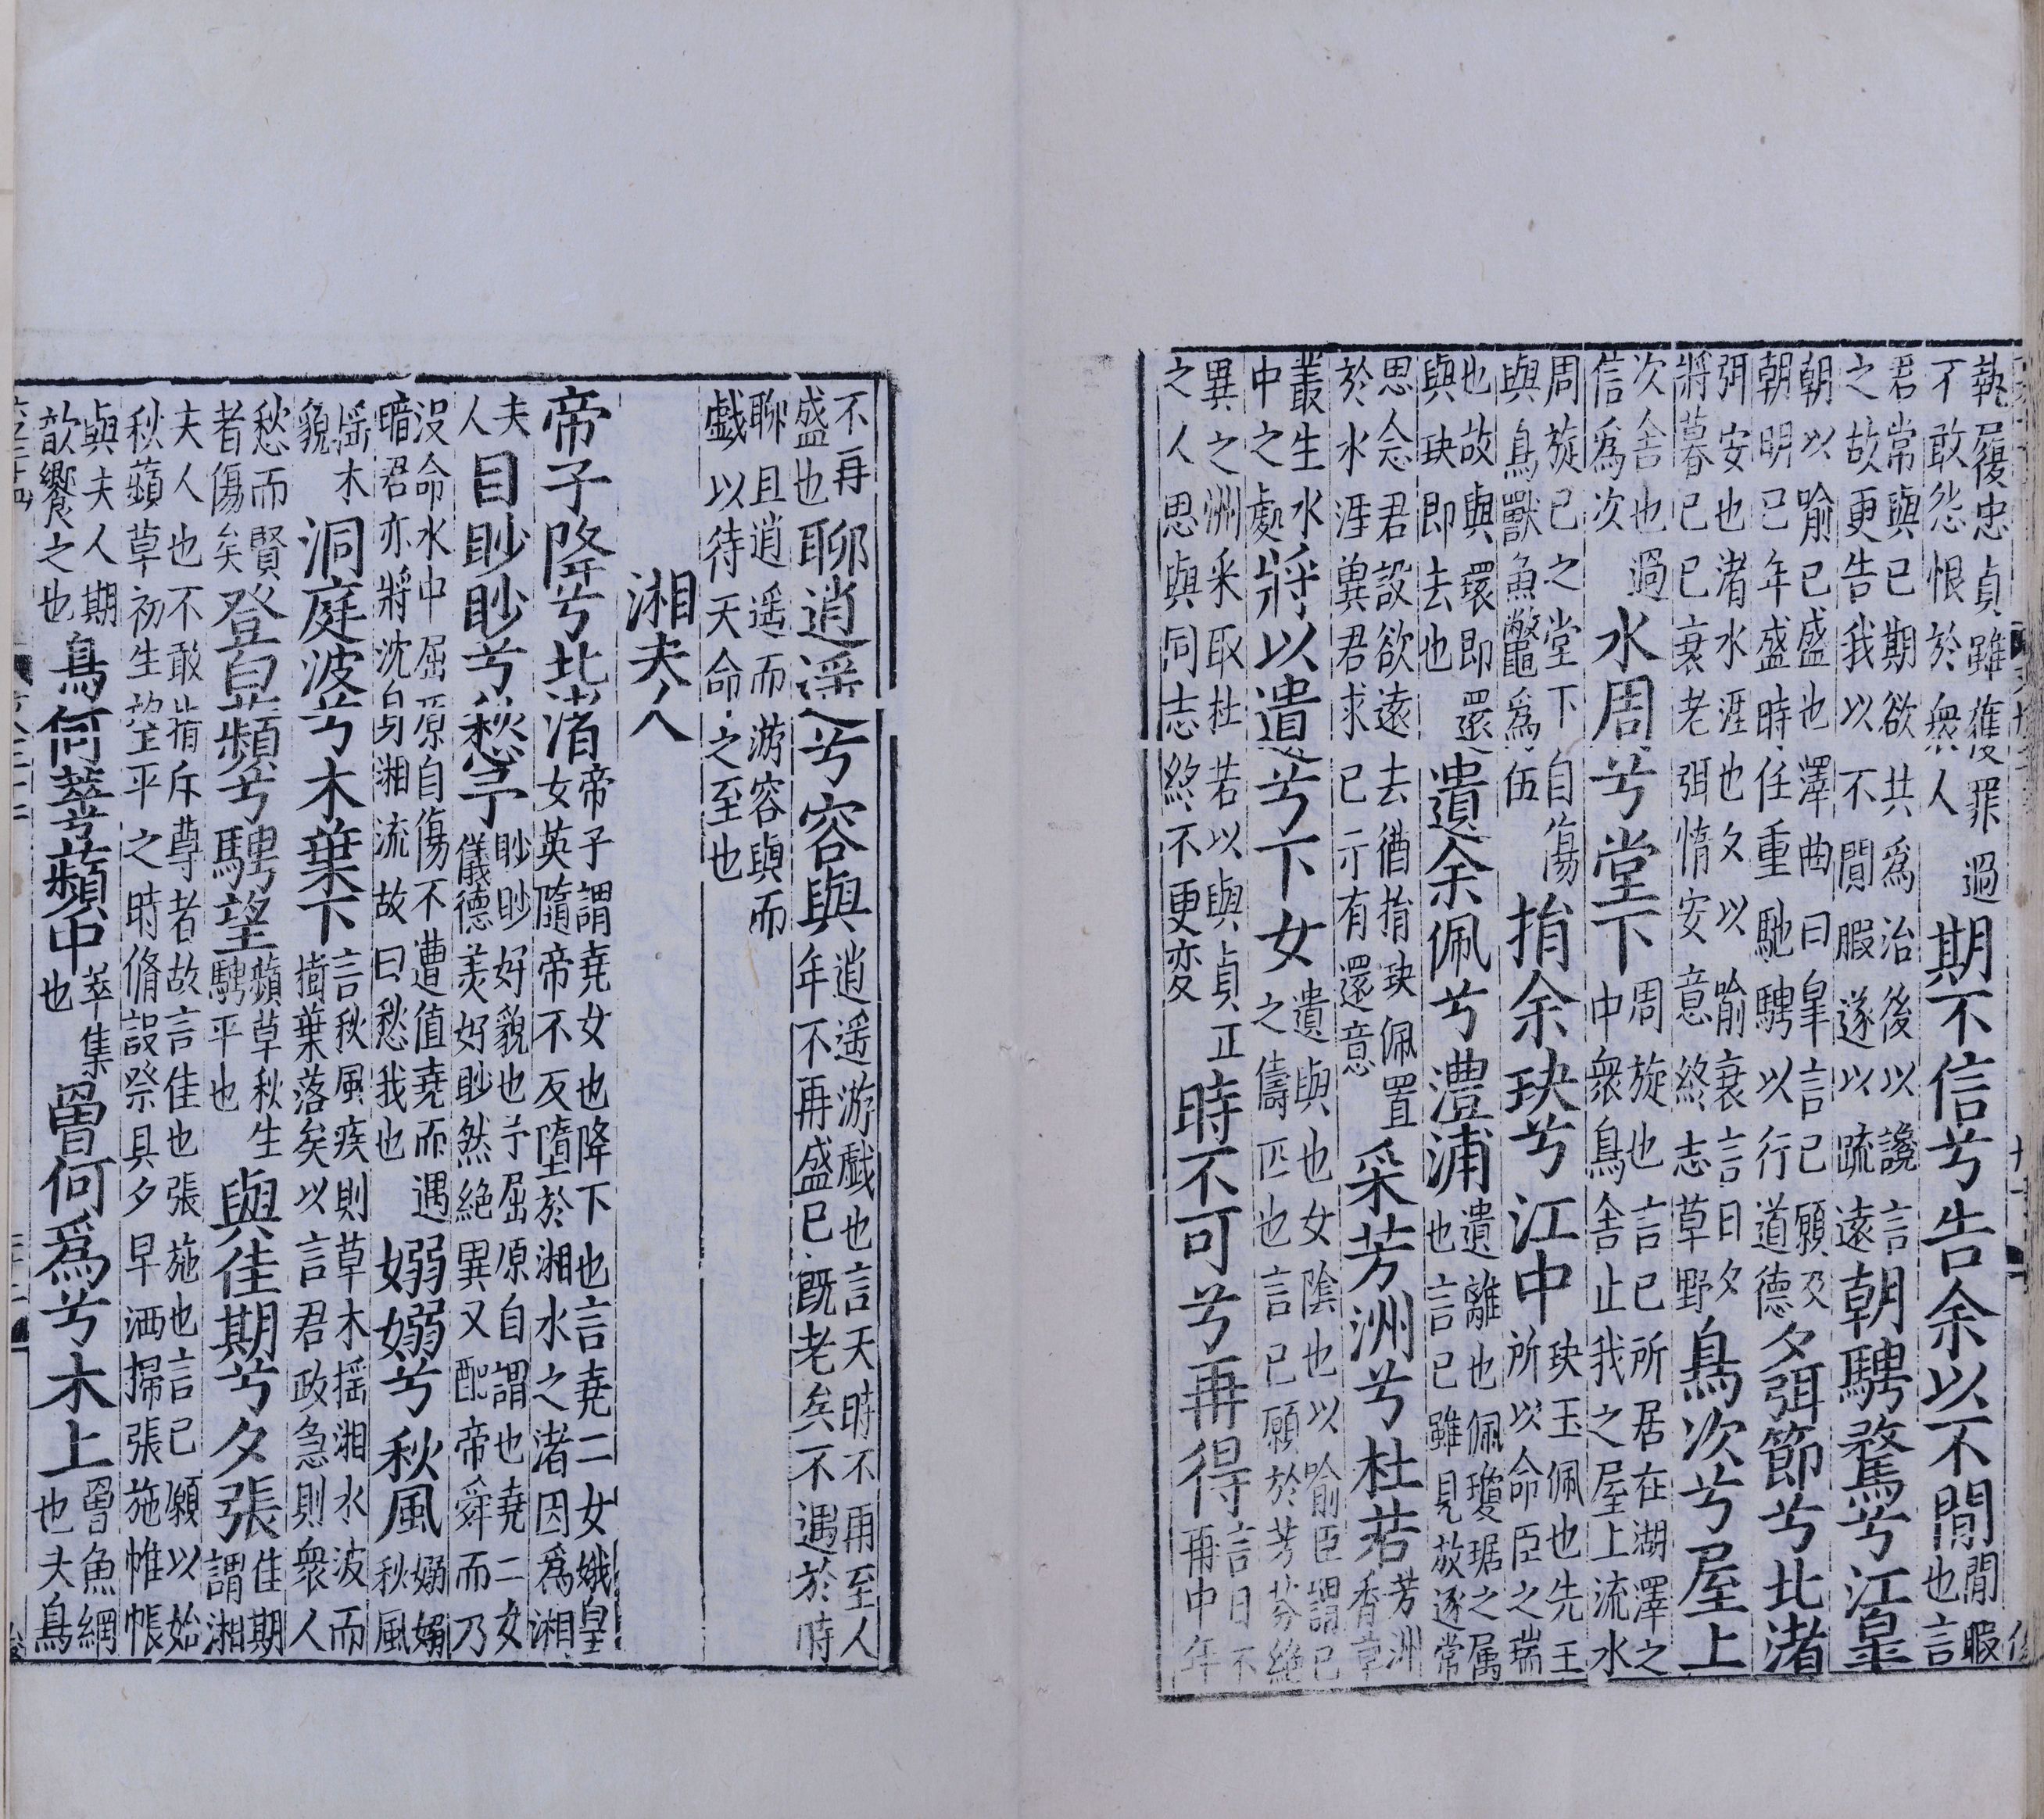 執履忠貞雖獲罪過不敢怨恨於衆人期不信兮告余以不閒閒暇也言
君常與己期欲共爲治後以讒言之故更告我以不閒暇遂以疏遠朝騁騖兮江皋
朝以喻己盛也澤曲曰皋言己願及朝明己年盛時任重馳騁以行道德夕弭節兮北渚
弭安也渚水涯也夕以喻衰言日夕將暮己已衰老弭情安意終志草野鳥次兮屋上
次舍也過信爲次水周兮堂下周旋也言己所居在湖澤之中衆鳥舍止我之屋上流水
周旋己之堂下自傷與鳥獸魚鼈爲伍捐余玦兮江中玦玉佩也先王所以命臣之瑞
也故與環即還與玦即去也遺余佩兮澧浦遺離也佩瓊琚之属也言己雖見放逐常
思念君設欲遠去猶捐玦佩置於水涯冀君求己示有還意采芳洲兮杜若芳洲香草
叢生水中之處將以遺兮下女遺與也女陰也以喻臣謂己之儔匹也言己願於芳芬絶
異之洲采取杜若以與貞正之人思與同志終不更変時不可兮再得言日不再中年
不再盛也聊逍遥兮容與逍遥游戲也言天時不再至人年不再盛已既老矣不遇於時
聊且逍遥而游容與而戲以待天命之至也
湘夫人
帝子降兮北渚帝子謂堯女也降下也言堯二女娥皇女英隨帝不反墮於湘水之渚因爲湘
夫人目眇眇兮愁予眇眇好貌也予屈原自謂也堯二女儀德羙好眇然絶異又配帝舜而乃
没命水中屈原自傷不遭值堯而遇暗君亦將沈身湘流故曰愁我也嫋嫋兮秋風嫋嫋秋風
摇木貌洞庭波兮木葉下言秋風疾則草木摇湘水波而樹葉落矣以言君政急則衆人
愁而賢者傷矣登白蘋兮騁望蘋草秋生騁平也與佳期兮夕張佳期謂湘
夫人也不敢指斥尊者故言佳也張施也言己願以始秋蘋草初生望平之時脩設祭具夕早洒掃張施帷帳
與夫人期歆饗之也鳥何萃兮蘋中萃集也罾何爲兮木上罾魚網也夫鳥